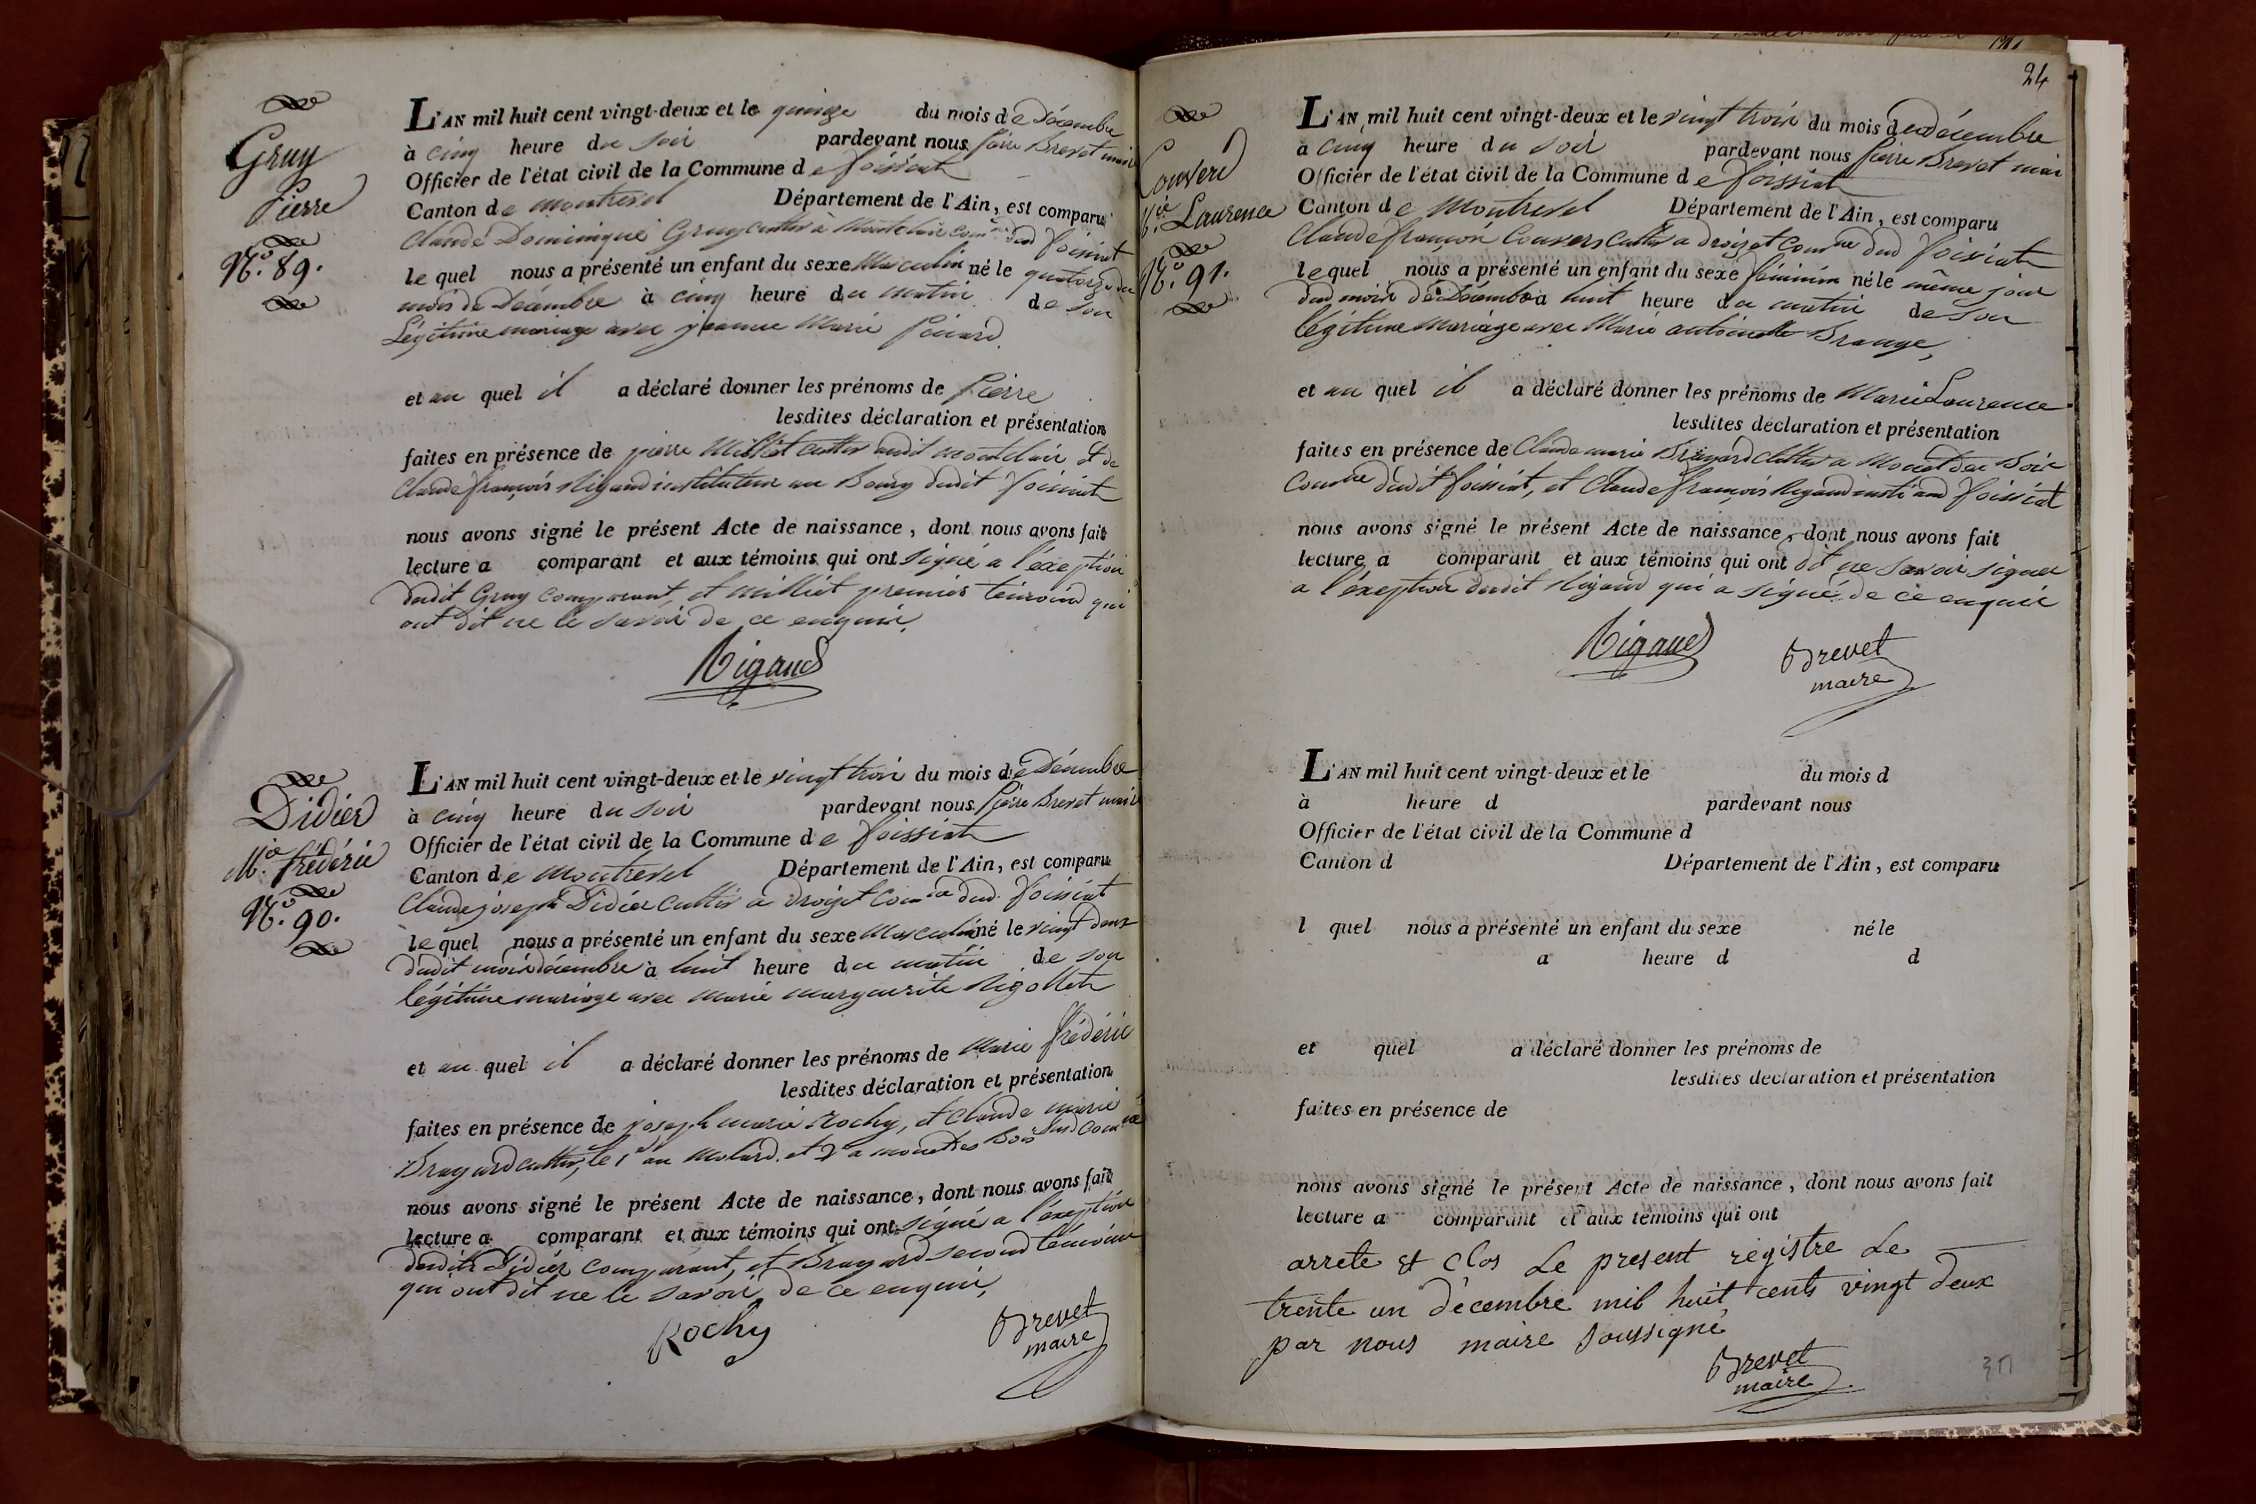 Gruy
Pierre
N.o 89.
L'AN mil huit cent vingt-deux et le quinze du mois de Décembre
à cinq heure du soir pardevant nous Pierre Brevet maire
Officier de l'état civil de la Commune de foissiat
Canton de montrevel Département de l'Ain, est comparu
Claude Dominique Gruy culter à Montclair com.ne dud foissiat
lequel nous a présenté un enfant du sexe Masculin né le quatorze du
mois de Décembre à cinq heure du matin de son
Légitime mariage avec jeanne Marie
et au quel il a déclaré donner les prénoms de Pierre
lesdites déclaration et présentation
faites en présence de pierre Milliet culter audit montclair et de
Claude françois Rigaud instituteur au Bourg dudit foissiat
nous avons signé le présent Acte de naissance, dont nous avons fait
lecture a comparant et aux témoins qui ont signé a l'éxeption
dudit Gruy comparant, et Milliet premier témoind qui
ont dit ne le savoir de ce enquis.
Rigaud
Didier
M.ie frédéric
N.o 90.
L'AN mil huit cent vingt-deux et le vingt trois du mois de Décembre
à cinq heure du soir pardevant nous Pierre Brevet maire
Officier de l'état civil de la Commune de foissiat
Canton de Montrevel Département de l'Ain, est comparu
Claude joseph Didier culter a Droizet com.ne dud. foissiat
lequel nous a présenté un enfant du sexe Masculin né le vingt deux
dudit mois décembre à huit heure du matin de son
légitime mariage avec marie marguerite Rigollet
et au quel il a déclaré donner les prénoms de Marie frédéric
lesdites déclaration et présentation
faites en présence de joseph marie Rochy, et Claude marie
Brayard culter, le 1er au Molard. et 2d a monet des Bois dud com.ne
nous avons signé le présent Acte de naissance, dont nous avons fait
lecture a comparant et aux témoins qui ont signé a l'éxeption
dudit Didier comparant, et Brayard second témoins
qui ont dit ne le savoir de ce enquis,
Rochy Brevet
maire
24
Convers
M.ie Laurence
N.o 91.
L'AN mil huit cent vingt-deux et le vingt trois du mois de décembre
à cinq heure du soir pardevant nous Pierre Brevet mai
Officier de l'état civil de la Commune de foissiat
Canton de Montrevel Département de l'Ain, est comparu
Claude françois Convers culter a Droizet com.ne dud foissiat
lequel nous a présenté un enfant du sexe féminin né le même jour
dud mois de Décembre à huit heure du matin de son
légitime Mariage avec Marie antoinette Brange,
et au quel il a déclaré donner les prénoms de Marie Laurence
lesdites déclaration et présentation
faites en présence de Claude marie Brayard culter a Monet des Bois
com.ne dudit foissiat, et Claude françois Rigaud insti aud foissiat
nous avons signé le présent Acte de naissance, dont nous avons fait
lecture a comparant et aux témoins qui ont dit ne savoir signer
a l'éxeption dudit Rigaud qui a signé de ce enquis
Rigaud Brevet
maire
L'AN mil huit cent vingt-deux et le du mois d
à heure d pardevant nous
Officier de l'état civil de la Commune d
Canton d Département de l'Ain, est comparu
l quel nous a présenté un enfant du sexe né le
a heure d d
et quel a déclaré donner les prénoms de
lesdites declaration et présentation
faites en présence de
nous avons signé le présent Acte de naissance, dont nous avons fait
lecture a comparant et aux témoins qui ont
arrete et clos Le present registre Le
trente un décembre mil huit cents vingt deux
par nous maire soussigné
Brevet
maire